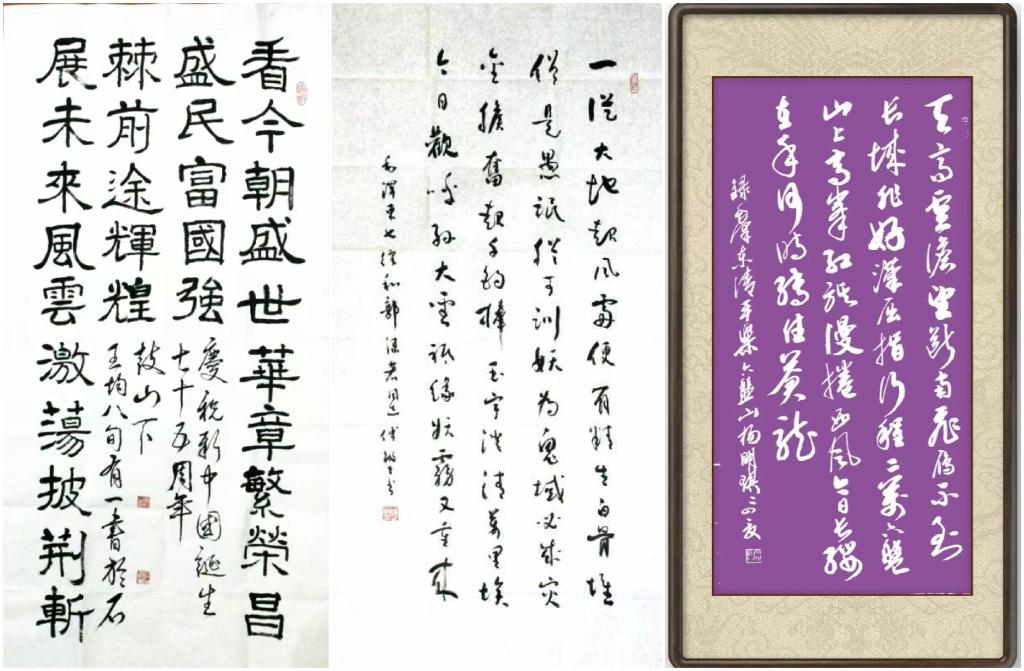 看今朝盛世華章繁榮昌
盛民富國強
展未來風雲激蕩披荆斬
棘前途輝煌
慶祝新中國誕生
七十五周年
王均八旬有一書於石
鼓山下
一從大地起風雷便有精生白骨堆
僧是愚氓猶可訓妖為鬼蜮必成災
金猴奮起千鈞棒玉宇澄清萬里埃
今日歡呼孫大聖祇緣妖霧又重來
毛澤東七律和郭沫若同志
天高雲淡望斷南飛雁不到
长城非好漢屈指行程二萬六盤
山上高峯红旗漫捲西风今日长缨
在手何時縛住蒼龍
録毛澤东清平樂六盤山杨明琪